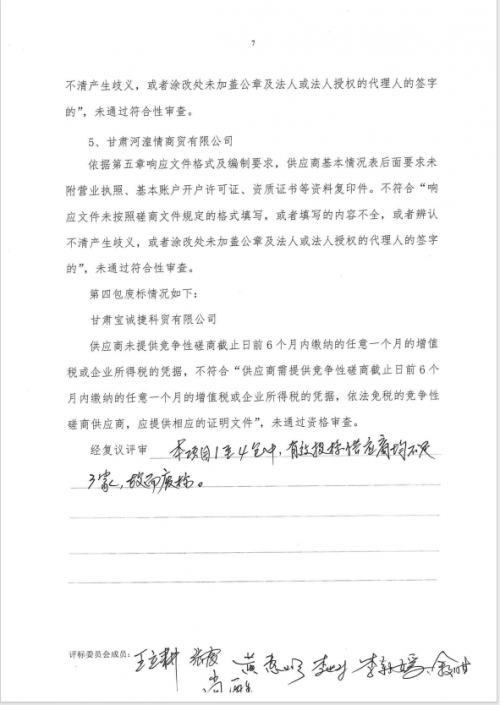 7
不清产生歧义，或者涂改处未加盖公章及法人或法人授权的代理人的签字
的”，未通过符合性审查。
5、甘肃河湟情商贸有限公司
依据第五章响应文件格式及编制要求，供应商基本情况表后面要求未
附营业执照、基本账户开户许可证、资质证书等资料复印件。不符合“响
应文件未按照磋商文件规定的格式填写，或者填写的内容不全，或者辨认
不清产生歧义，或者涂改处未加盖公章及法人或法人授权的代理人的签字
的”，未通过符合性审查。
第四包废标情况如下：
甘肃宝诚捷科贸有限公司
供应商未提供竞争性磋商截止日前6个月内缴纳的任意一个月的增值
税或企业所得税的凭据，不符合“供应商需提供竞争性磋商截止日前6个
月内缴纳的任意一个月的增值税或企业所得税的凭据，依法免税的竞争性
磋商供应商，应提供相应的证明文件”，未通过资格审查。
经复议评审 本项目1至4包中，有效投标供应商均不足
3家，故而废标。
评标委员会成员：